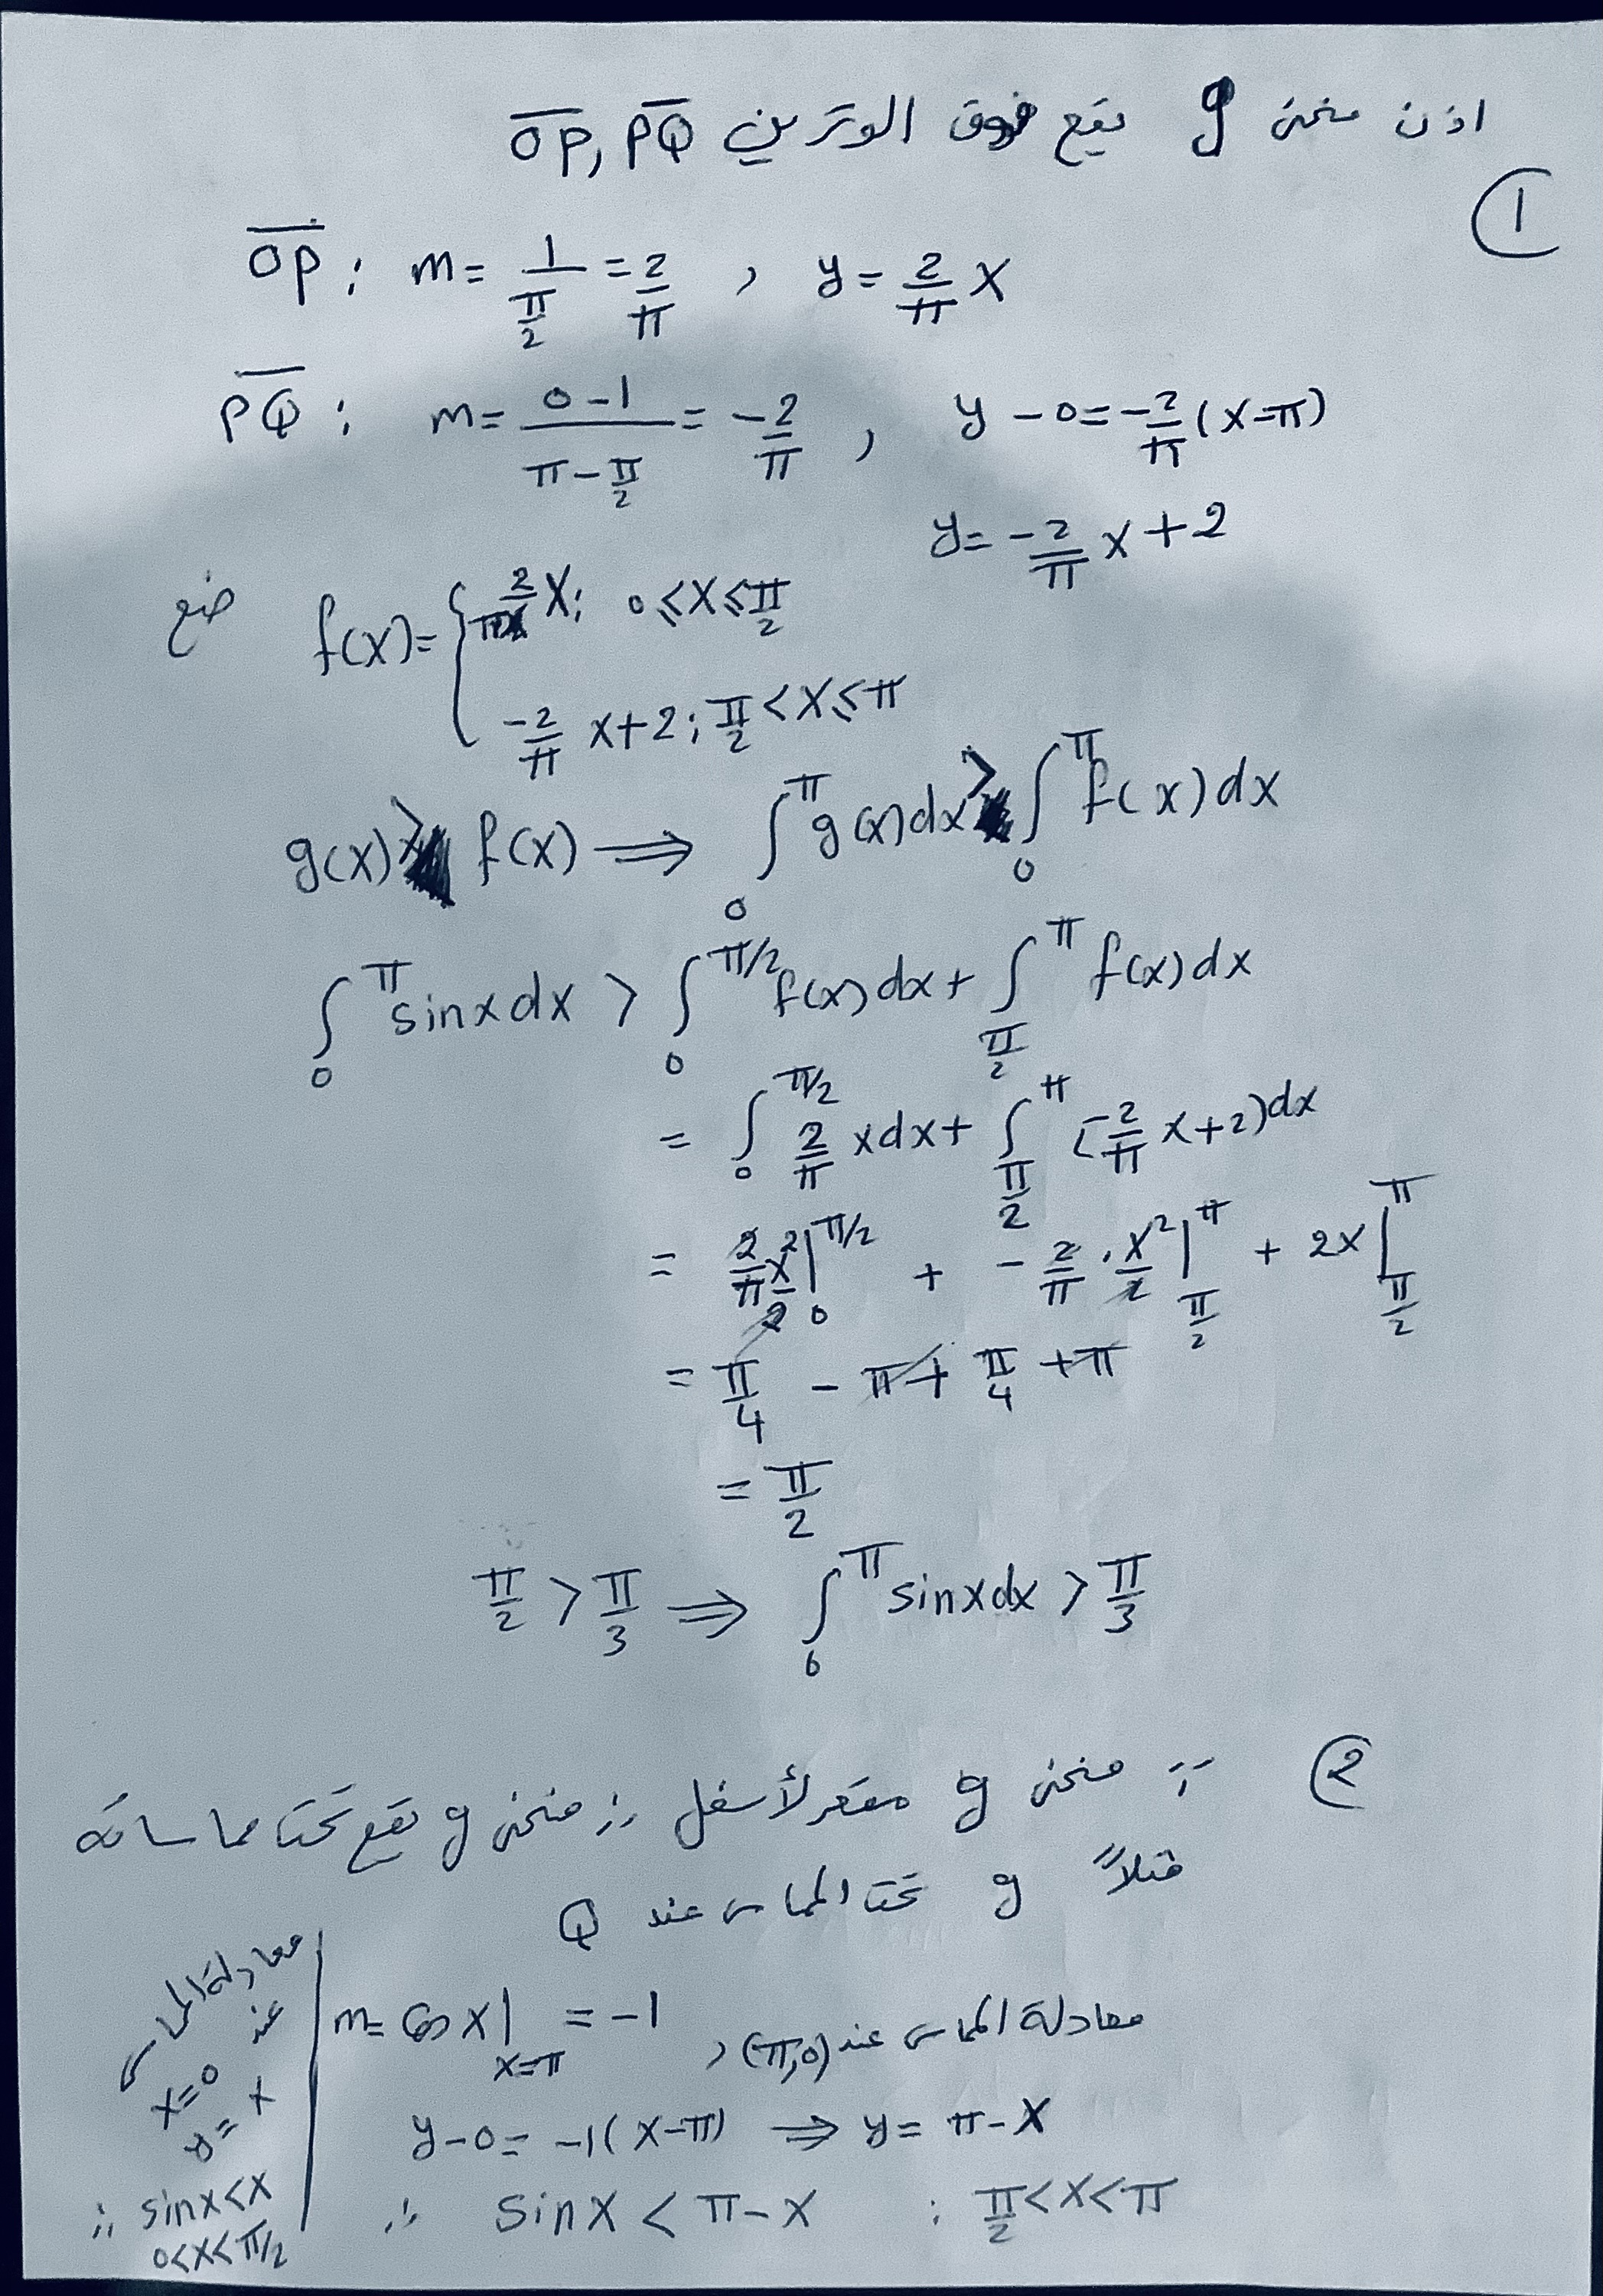 اذن منحنى g يقع فوق الوترين OP, PQ
①
OP : m = 1/(π/2) = 2/π , y = 2/π x
PQ : m = (0-1)/(π-π/2) = -2/π , y - 0 = -2/π (x-π)
y = -2/π x + 2
ضع f(x) = { 2/π x ; 0 ≤ x ≤ π/2
-2/π x + 2 ; π/2 < x ≤ π
g(x) > f(x) ⟹ ∫₀^π g(x) dx > ∫₀^π f(x) dx
∫₀^π sin x dx > ∫₀^{π/2} f(x) dx + ∫_{π/2}^π f(x) dx
= ∫₀^{π/2} 2/π x dx + ∫_{π/2}^π (-2/π x + 2) dx
= 2/π x²/2 |₀^{π/2} + -2/π · x²/2 |_{π/2}^π + 2x |_{π/2}^π
= π/4 - π + π/4 + π
= π/2
π/2 > π/3 ⟹ ∫₀^π sin x dx > π/3
② ∵ منحنى g مقعر لأسفل ∴ منحنى g يقع تحت مماساته
فمثلاً g تحت المماس عند Q
m = cos x |_{x=π} = -1 , معادلة المماس عند (π,0)
y - 0 = -1(x-π) ⟹ y = π - x
∴ sin x < π - x ; π/2 < x < π
معادلة المماس
عند
x=0
y = x
∴ sin x < x
0<x<π/2